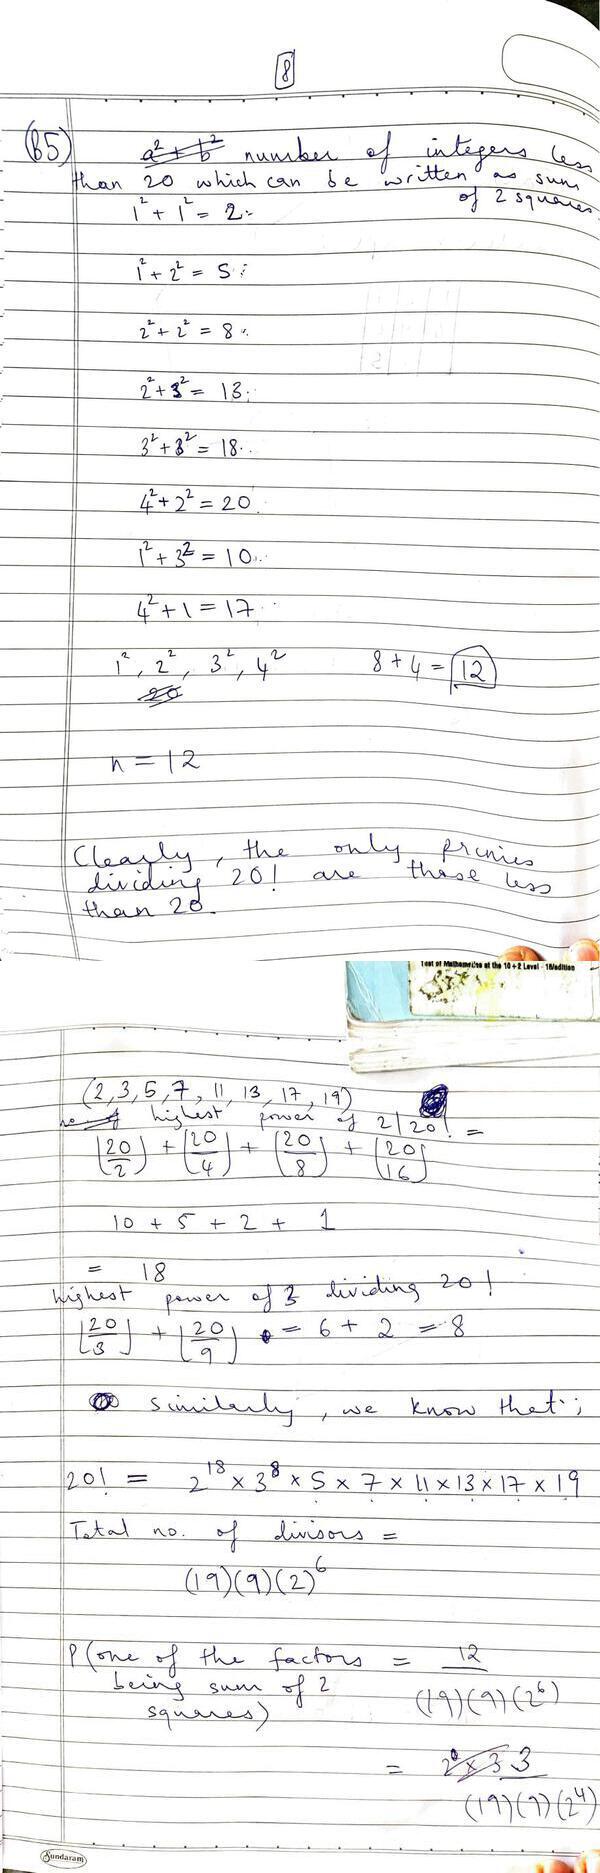 8
(B5) a² + b² number of integers less
than 20 which can be written as sum
of 2 squares
1² + 1² = 2
1² + 2² = 5
2² + 2² = 8
2² + 3² = 13
3² + 3² = 18
4² + 2² = 20
1² + 3² = 10
4² + 1 = 17
1², 2², 3², 4² 8 + 4 = 12
20
n = 12
Clearly, the only primes
dividing 20! are those less
than 20.
Test of Mathematics at the 10+2 Level - 16/edition
(2, 3, 5, 7, 11, 13, 17, 19)
highest power of 2 | 20! =
⌊20/2⌋ + ⌊20/4⌋ + ⌊20/8⌋ + ⌊20/16⌋
10 + 5 + 2 + 1
= 18
highest power of 3 dividing 20!
⌊20/3⌋ + ⌊20/9⌋ = 6 + 2 = 8
similarly, we know that;
20! = 2¹⁸ × 3⁸ × 5 × 7 × 11 × 13 × 17 × 19
Total no. of divisors =
(19)(9)(2)⁶
P(one of the factors = 12 / (19)(9)(2⁶)
being sum of 2
squares)
= 3 / (19)(9)(2⁴)
Sundaram